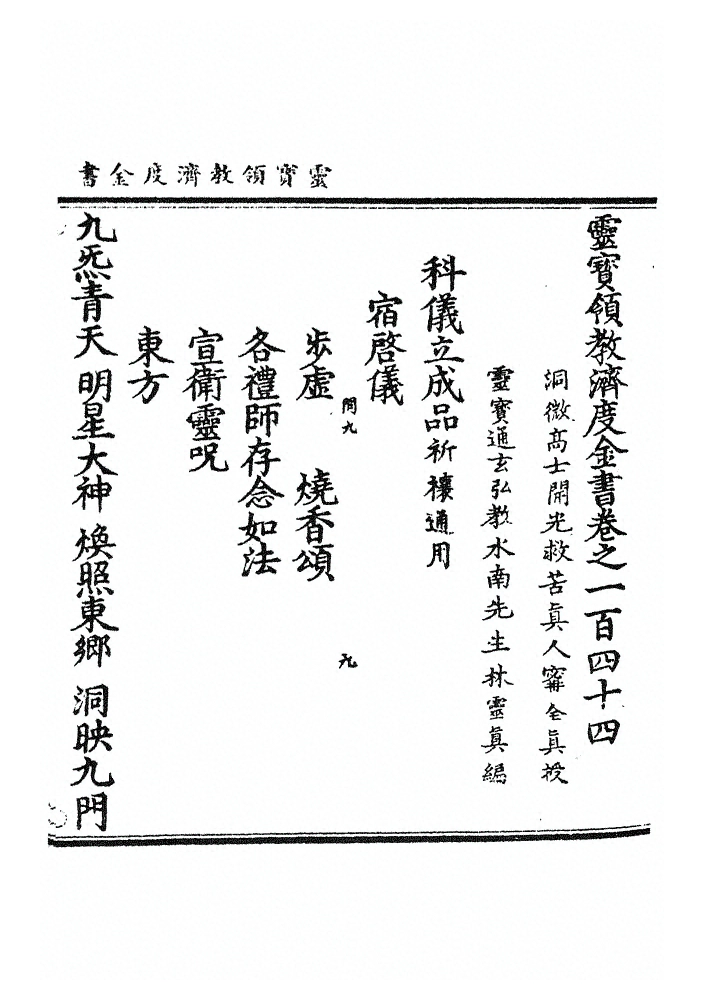 靈寶領教濟度金書
靈寶領教濟度金書卷之一百四十四
洞微高士開光救苦真人寗全真授
靈寶通玄弘教水南先生林靈真編
科儀立成品祈禳通用
宿啓儀
問九
九
步虛 燒香頌
各禮師存念如法
宣衛靈呪
東方
九炁青天 明星大神 煥照東鄉 洞映九門